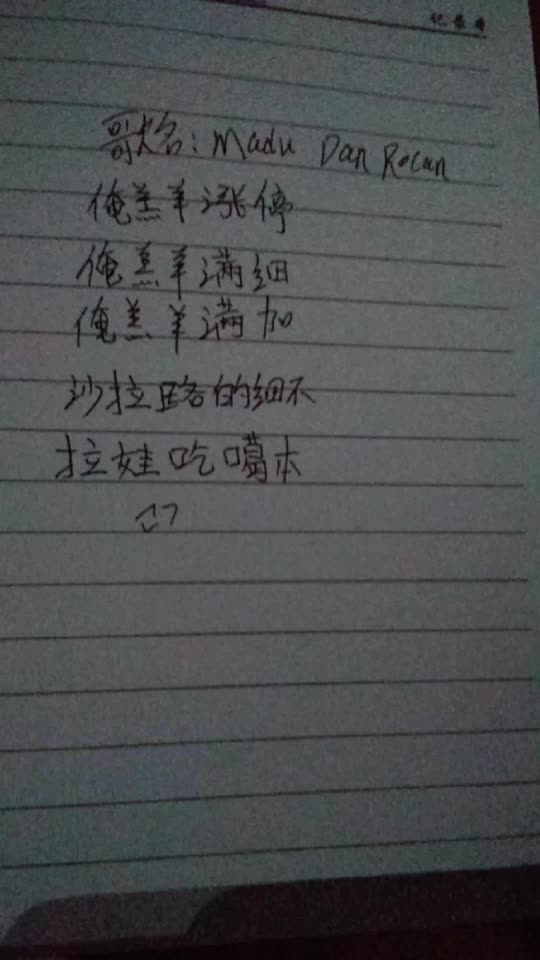 记录本
歌名：Madu Dan Racun
俺羔羊涨停
俺羔羊满细
俺羔羊满加
沙拉路的细不
拉娃吃噶本